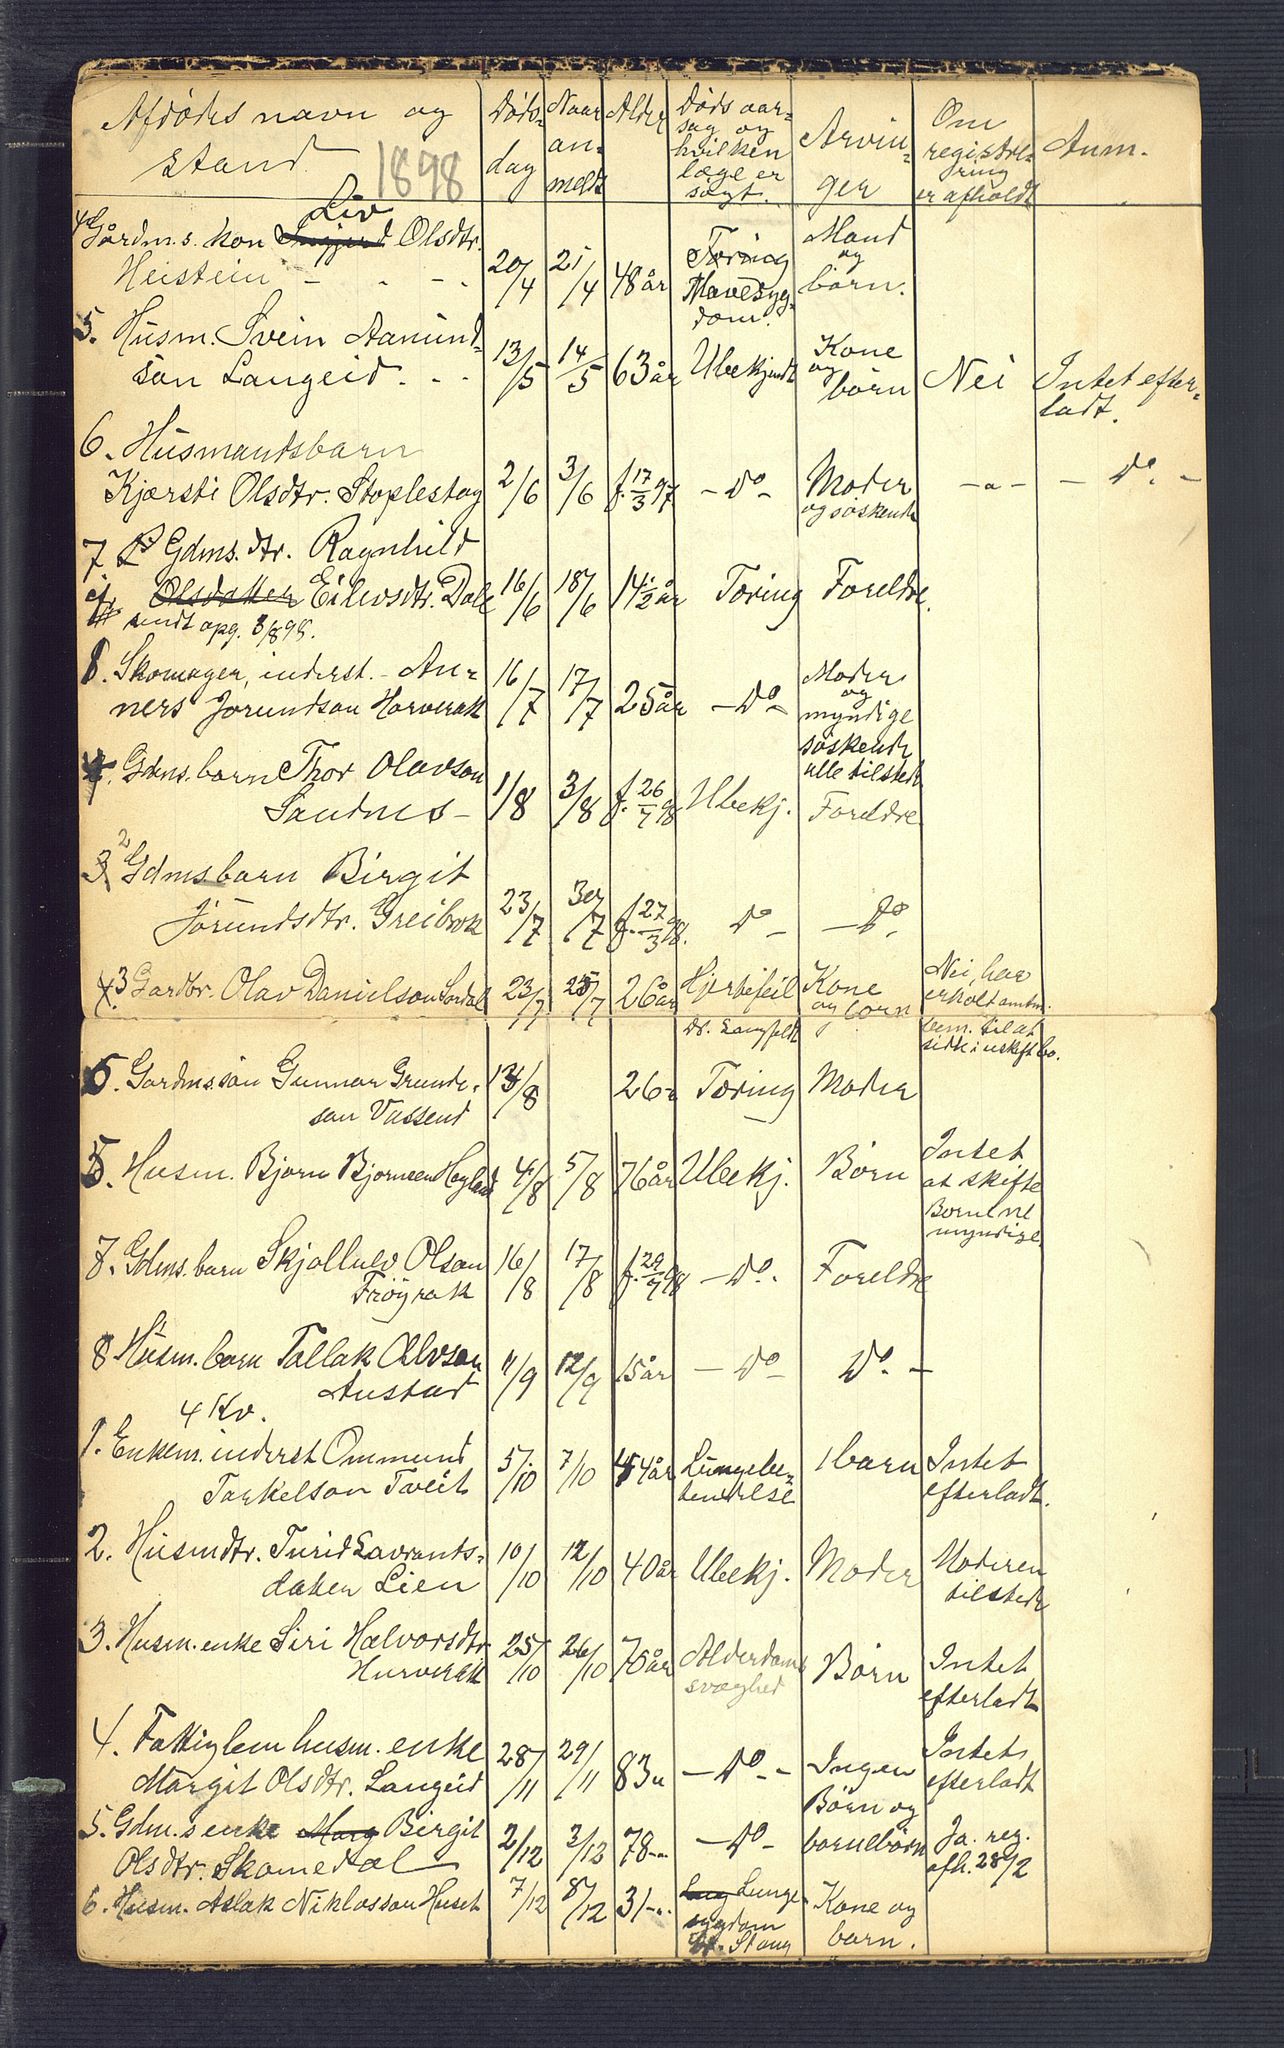 Afdødes navn og stand 1898 | Døds-dag | Naar an-meldt | Alder | Døds aar-sag og hvilken læge er søgt. | Arvin-ger | Om registre-ring er afholdt | Anm.
4 Gårdm.s. kon Liv Olsdtr.
Heistein - - - 20/4 21/4 48 år Tæring Mavesyg-dom. Mand og børn.
5. Husm. Svein Aamund-
sön Langeid. - - 13/5 14/5 63 år Ubekjendt Kone og børn Nei Intet efter-ladt.
6. Husmandsbarn
Kjærsti Olsdtr. Stoplestøg 2/6 3/6 f. 17/3 97 - Do - Moder og søskende - " - - Do. -
7 Gdms. dtr. Ragnhild
Olsdatter Eilevsdtr. Dale 16/6 18/6 14 1/2 år Tæring Foreldre.
sendt opg. 3/8 98.
1. Skomager, inderst. - An-
ners Jorundson Harverak 16/7 17/7 25 år - Do - Moder og myndige søskende alle tilstede
Gdms. barn Thor Olavson
Sandnes - 1/8 3/8 f. 26/7 98 Ubekj. Foreldre
2 Gdms barn Birgit
Jörundsdtr. Greibrok 23/7 30/7 f. 27/3 98. Do - - Do.
3 Gardbr. Olav Danielson Sordal 23/7 25/7 26 år Hjertefeil Dr. Langfeldt Kone og born Nei, har erholdt amtm. til at sidde i uskift bo.
5. Gardms.sön Gunnar Grunde-
son Vassend 13/8 26 " Tæring Moder
5. Husm. Bjorn Bjornsen Hegland 4/8 5/8 76 år Ubekj. Børn Intet at skifte Bornene myndige.
7. Gdms. barn Skjollulv Olson
Fröyrak 16/8 17/8 f. 29/7 98 - Do. - Foreldre
8 Husm. barn Tallak Olvson
Austad 11/9 12/9 15 år - Do - Do. -
4 Kv.
1. Enkem. inderst Ommund
Tarkelson Tveit 5/10 7/10 44 år Lungebe-tendelse 1 barn Intet efterladt.
2. Husmdtr. Turid Lavrants-
datter Lien 10/10 12/10 40 år Ubekj. Moder Moderen tilstede
3. Husm. enke Siri Halvorsdtr.
Hurverak 25/10 26/10 75 år Alderdoms svaghed Børn Intet efterladt
4. Fattiglem husm. enke
Margit Olsdtr. Langeid 28/11 29/11 83 " - Do - - Ingen Intet efterladt
5. Gdm.s enke Marg Birgit
Olsdtr. Skomedal 2/12 3/12 78 - " - Do - Børn og bornebörn Ja. reg. afh. 28/2
6. Husm. Aslak Niklosson Huset 7/12 8/12 31 - " Lung Lunge-sygdom Dr. Stang Kone og barn.